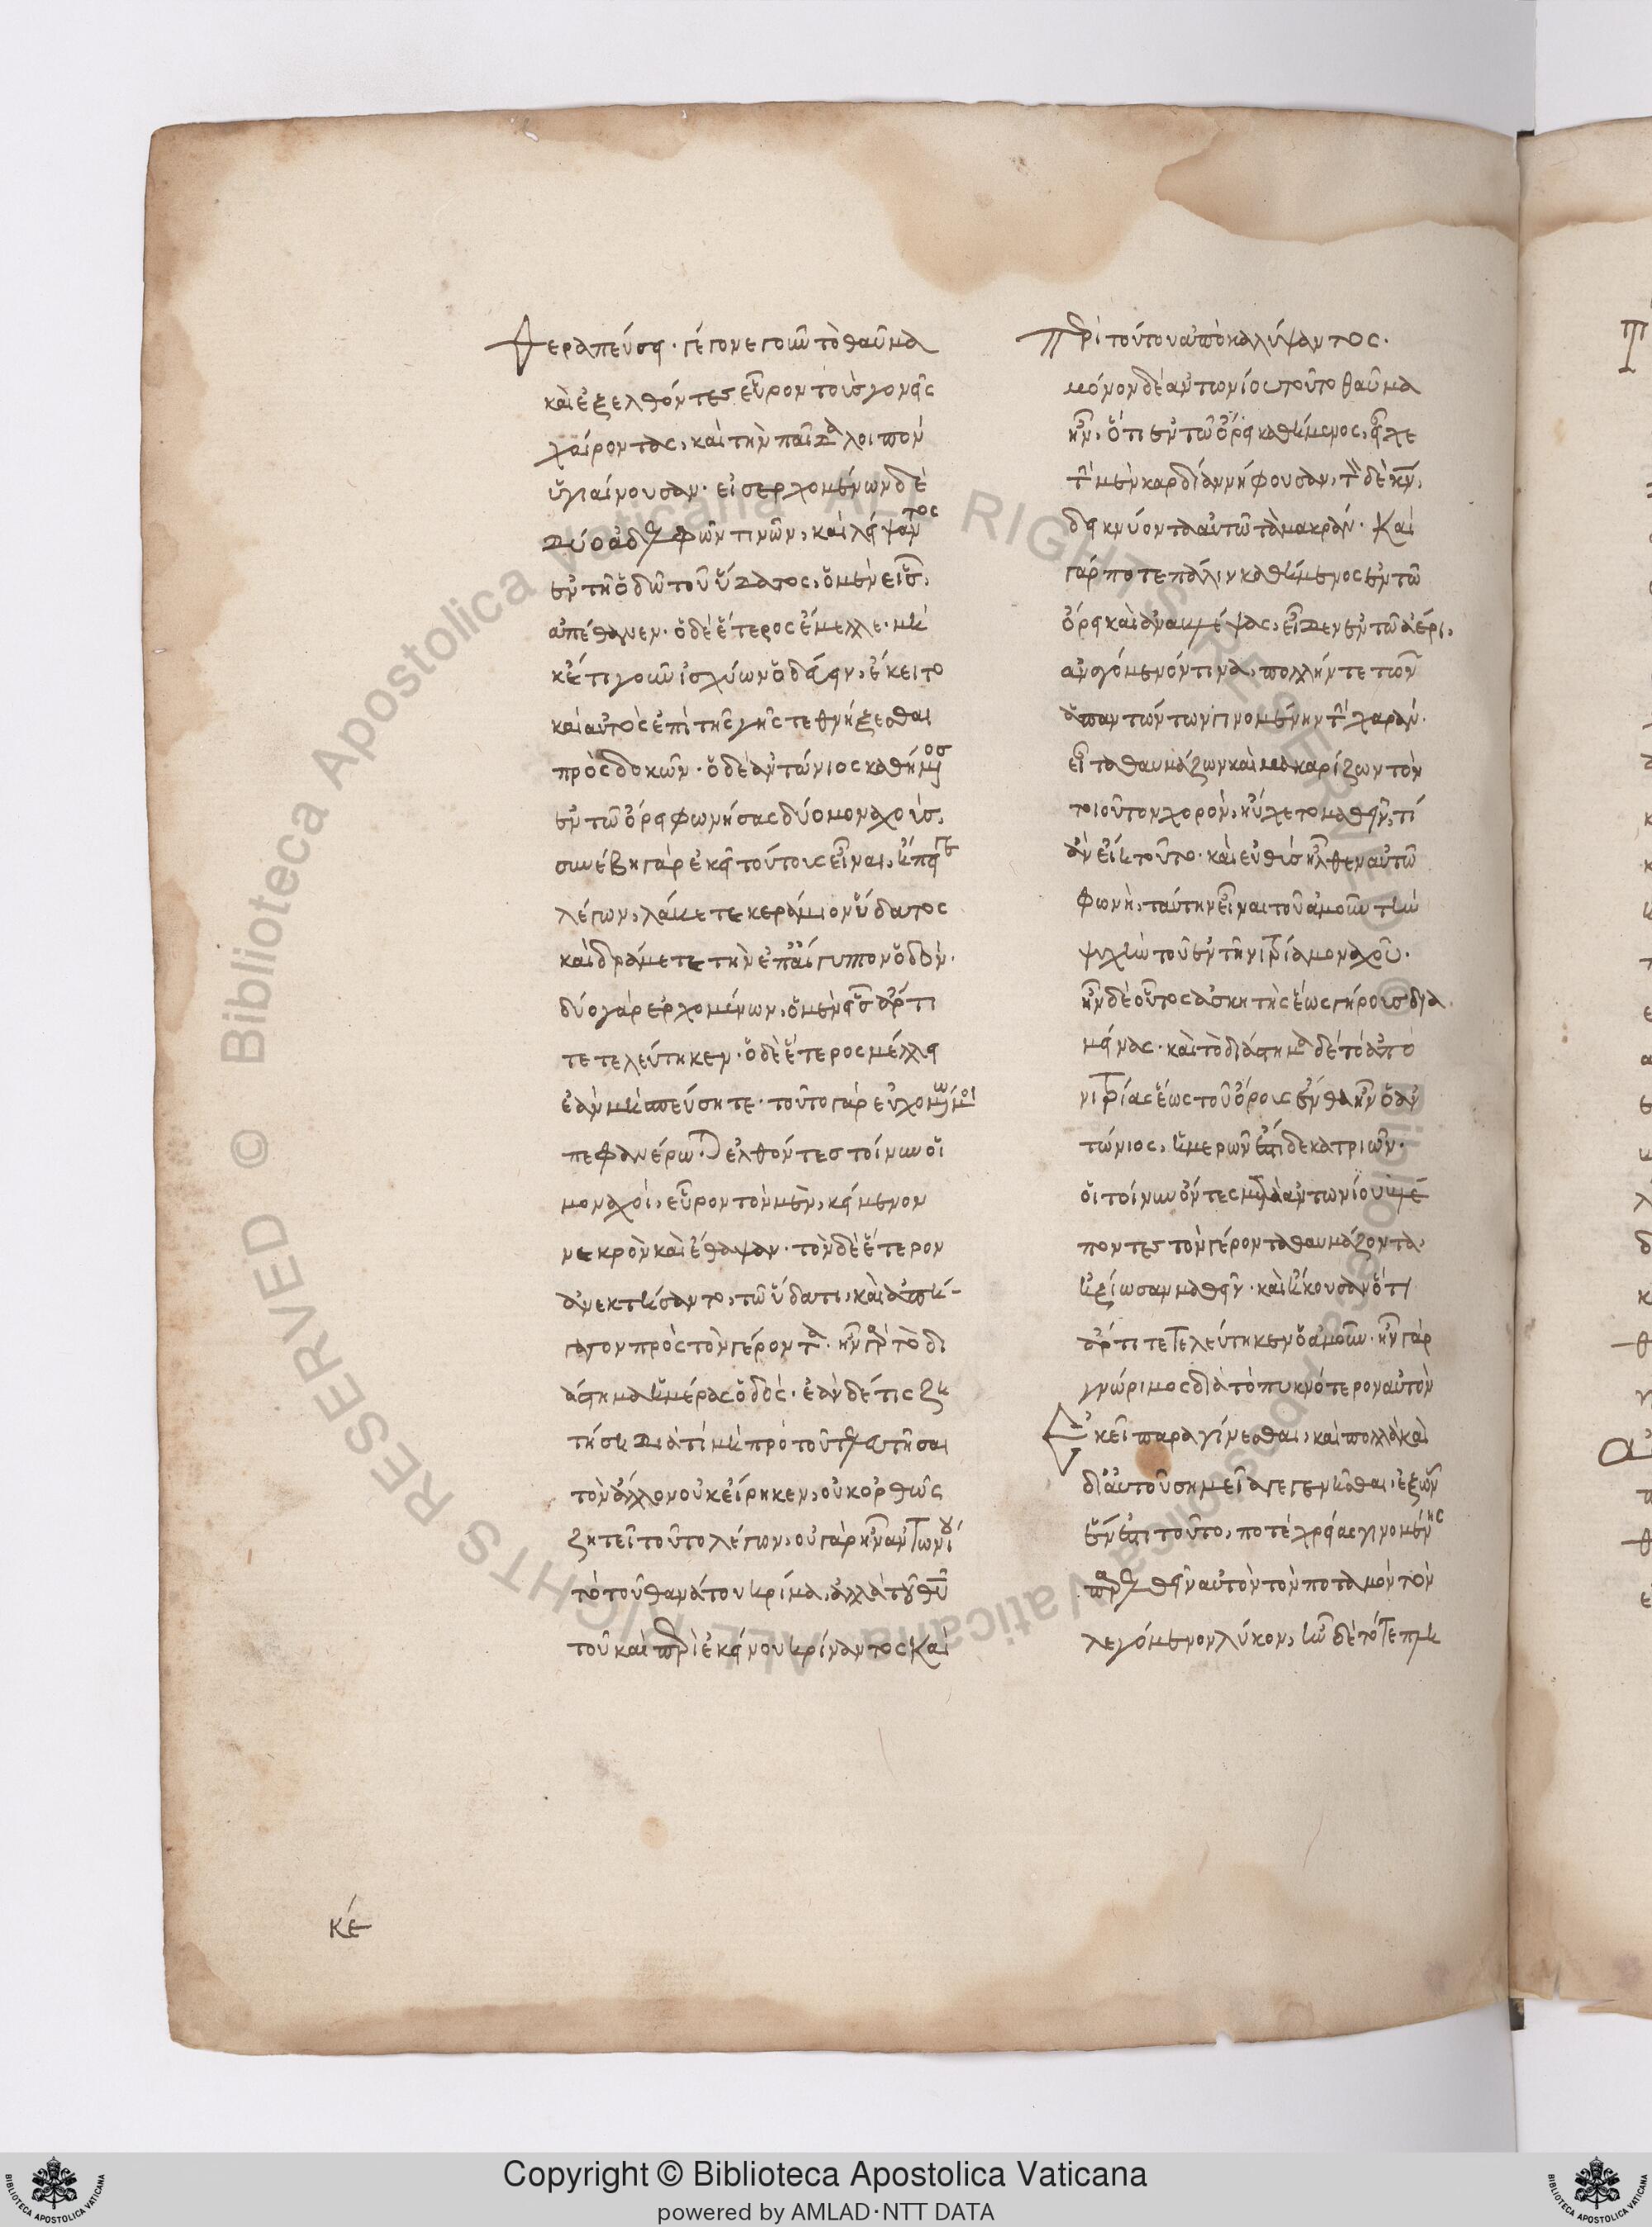 θεραπεύσει· γέγονε γοῦν τὸ θαῦμα
καὶ ἐξελθόντες εὗρον τοὺς γονεῖς
χαίροντας, καὶ τὴν παῖδα λοιπὸν
ὑγιαίνουσαν· εἰσερχομένων δὲ
δύο ἀδελφῶν τινῶν, καὶ λείψαντος
ἐν τῇ ὁδῷ τοῦ ὕδατος, ὁ μὲν εἷς,
ἀπέθανεν· ὁ δὲ ἕτερος ἔμελλε· μη
κέτι γοῦν ἰσχύων ὁδεύειν, ἔκειτο
καὶ αὐτὸς ἐπὶ τῆς γῆς τεθνήξεσθαι
προσδοκῶν· ὁ δὲ ἀντώνιος καθήμενος
ἐν τῷ ὄρει φωνήσας δύο μοναχούς,
συνέβη γὰρ ἐκεῖ τούτοις εἶναι,
λέγων, λάβετε κεράμιον ὕδατος
καὶ δράμετε τὴν ἐπ' αἴγυπτον ὁδόν·
δύο γὰρ ἐρχομένων, ὁ μὲν εἷς ἄρτι
τετελεύτηκεν· ὁ δὲ ἕτερος μέλλει
ἐὰν μὴ σπεύσητε· τοῦτο γὰρ εὐχομένω μοι
πεφανέρωται ἐλθόντες τοίνυν οἱ
μοναχοί, εὗρον τὸν μὲν, κείμενον
νεκρὸν καὶ ἔθαψαν· τὸν δὲ ἕτερον
ἀνεκτήσαντο, τῷ ὕδατι, καὶ ἀπή-
γαγον πρὸς τὸν γέροντα· ἦν γὰρ τὸ δι
άστημα ἡμέρας ὁδός· ἐὰν δέ τις ζη
τήσῃ διὰ τί μὴ πρὸ τοῦ τελευτῆσαι
τὸν ἄλλον οὐκ εἴρηκεν, οὐκ ὀρθῶς
ζητεῖ τοῦτο λέγων, οὐ γὰρ ἦν ἀντωνίου
τὸ τοῦ θανάτου κρίμα, ἀλλὰ τοῦ θῦ
τοῦ καὶ περὶ ἐκείνου κρίναντος καὶ
περὶ τούτου ἀποκαλύψαντος·
μόνον δὲ ἀντωνίου τοῦτο θαῦμα
ἦν, ὅτι ἐν τῷ ὄρει καθήμενος, εἶχε
τὴν μὲν καρδίαν νήφουσαν, τὸν δὲ κν̄,
δεικνύοντα αὐτῷ τὰ μακράν· Καὶ
γάρ ποτε πάλιν καθήμενος ἐν τῷ
ὄρει καὶ ἀναβλέψας, εἶδεν ἐν τῷ ἀέρι,
ἀναγόμενόν τινα, πολλήν τε τῶν
ἀπαντώντων γινομένην τὴν χαράν·
εἶτα θαυμάζων καὶ μακαρίζων τὸν
τοιοῦτον χορόν, ηὔχετο μαθεῖν, τί
ἂν εἴη τοῦτο· καὶ εὐθὺς ἦλθεν αὐτῷ
φωνὴ, ταύτην εἶναι τοῦ ἀμοῦν τὴν
ψυχὴν τοῦ ἐν τῇ νιτρίᾳ μοναχοῦ·
ἦν δὲ οὗτος ἀσκητὴς ἕως γήρους δια
μείνας· καὶ τὸ διάστημα δὲ τὸ ἀπὸ
νιτρίας ἕως τοῦ ὄρους ἔνθα ἦν ὁ ἀν
τώνιος, ἡμερῶν ἐστὶ δεκατριῶν·
οἱ τοίνυν ὄντες μετὰ ἀντωνίου βλέ
ποντες τὸν γέροντα θαυμάζοντα,
ἠξίωσαν μαθεῖν· καὶ ἤκουσαν ὅτι
ἄρτι τετελεύτηκεν ὁ ἀμοῦν· ἦν γὰρ
γνώριμος διὰ τὸ πυκνότερον αὐτὸν
Ἐκεῖ παραγίνεσθαι, καὶ πολλὰ καὶ
δι' αὐτοῦ σημεῖα γεγενῆσθαι, ἐξ ὧν
ἕν ἐστι τοῦτο, ποτὲ χρείας γινομένης
παρελθεῖν αὐτὸν τὸν ποταμὸν τὸν
λεγόμενον λύκον, ἦν δὲ τότε πλη
κέ
Copyright © Biblioteca Apostolica Vaticana
powered by AMLAD·NTT DATA